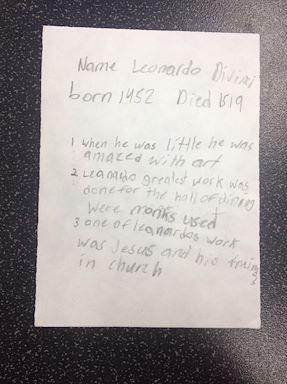 Name Leonardo Divinci
born 1452 Died 1519
1 when he was little he was
amazed with art
2 Leanardo greatest work was
done for the hall of dinning
were monks used
3 one of leanardos work
was Jesus and his
in church